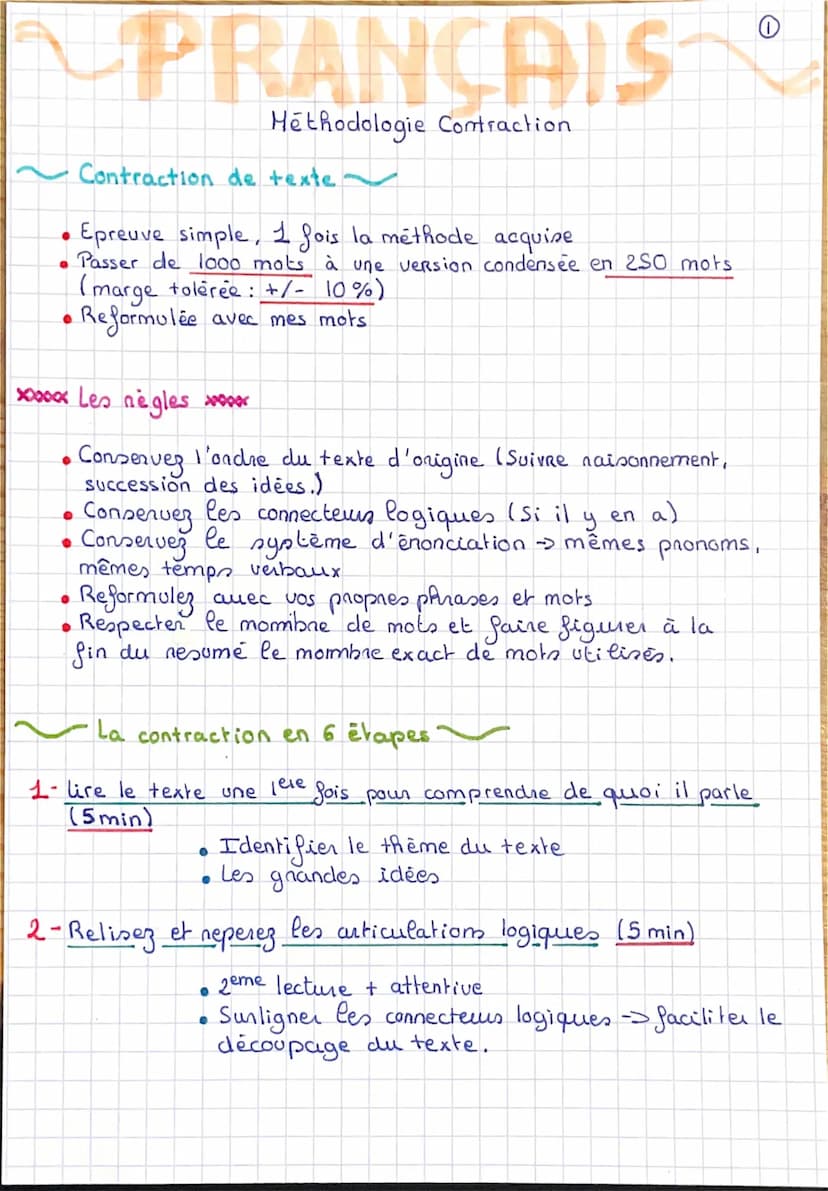 FRANÇAIS
1
Méthodologie Contraction
Contraction de texte
• Epreuve simple, 1 fois la méthode acquise
• Passer de 1000 mots à une version condensée en 250 mots
(marge tolérée : +/- 10 %)
• Reformulée avec mes mots
Les règles
• Conservez l'ordre du texte d'origine (Suivre raisonnement,
succession des idées.)
• Conservez les connecteurs logiques (Si il y en a)
• Conservez le système d'énonciation -> mêmes pronoms,
mêmes temps verbaux
• Reformulez avec vos propres phrases et mots
• Respecter le nombre de mots et faire figurer à la
fin du resumé le nombre exact de mots utilisés.
La contraction en 6 étapes
1- lire le texte une 1ère fois pour comprendre de quoi il parle
(5min)
• Identifier le thème du texte
• Les grandes idées
2- Relisez et reperez les articulations logiques (5 min)
• 2eme lecture + attentive
• Surligner les connecteurs logiques -> faciliter le
découpage du texte.